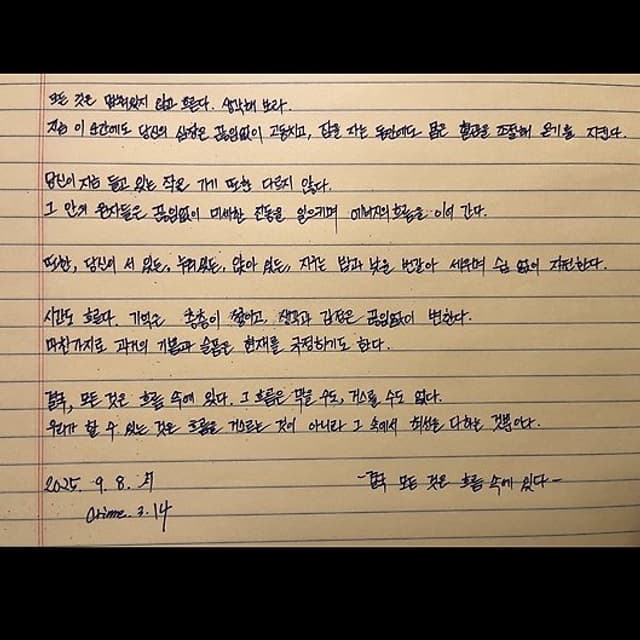 모든 것은 멈춰있지 않고 흐른다. 생각해 보라.
지금 이 순간에도 당신의 심장은 끊임없이 고동치고, 잠을 자는 동안에도 몸은 혈관을 조절해 온기를 지킨다.
당신이 지금 들고 있는 작은 기기 또한 다르지 않다.
그 안의 원자들은 끊임없이 미세한 진동을 일으키며 에너지의 흐름을 이어 간다.
또한, 당신이 서 있든, 누워있든, 앉아 있든, 지구는 밤과 낮을 번갈아 세우며 쉼 없이 자전한다.
시간도 흐른다. 기억은 층층이 쌓이고, 생각과 감정은 끊임없이 변한다.
마찬가지로 과거의 기쁨과 슬픔은 현재를 규정하기도 한다.
결국, 모든 것은 흐름 속에 있다. 그 흐름은 막을 수도, 거스를 수도 없다.
우리가 할 수 있는 것은 흐름을 거스르는 것이 아니라 그 속에서 최선을 다하는 것뿐이다.
2025. 9. 8. 月 -결국 모든 것은 흐름 속에 있다-
3.14